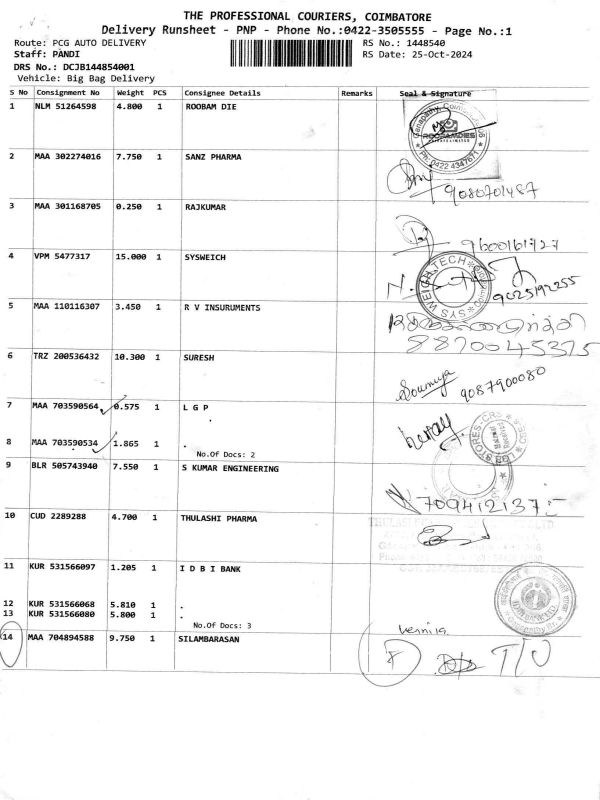 THE PROFESSIONAL COURIERS, COIMBATORE
Delivery Runsheet - PNP - Phone No.:0422-3505555 - Page No.:1
Route: PCG AUTO DELIVERY RS No.: 1448540
Staff: PANDI RS Date: 25-Oct-2024
DRS No.: DCJB144854001
Vehicle: Big Bag Delivery
S No Consignment No Weight PCS Consignee Details Remarks Seal & Signature
1 NLM 51264598 4.800 1 ROOBAM DIE
Ph: 0422 4347671
2 MAA 302274016 7.750 1 SANZ PHARMA
9080701487
3 MAA 301168705 0.250 1 RAJKUMAR
9600161727
4 VPM 5477317 15.000 1 SYSWEICH
SYS WEIGH TECH
9025192255
5 MAA 110116307 3.450 1 R V INSURUMENTS
8870045375
6 TRZ 200536432 10.300 1 SURESH
Soumya 9087900080
7 MAA 703590564 0.575 1 L G P
8 MAA 703590534 1.865 1 .
No.Of Docs: 2
9 BLR 505743940 7.550 1 S KUMAR ENGINEERING
10 CUD 2289288 4.700 1 THULASHI PHARMA
11 KUR 531566097 1.205 1 I D B I BANK
12 KUR 531566068 5.810 1 .
13 KUR 531566080 5.800 1 .
No.Of Docs: 3
14 MAA 704894588 9.750 1 SILAMBARASAN
T/O